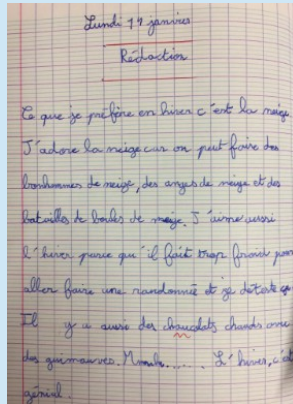 Lundi 14 janvier
Rédaction
Ce que je préfère en hiver c'est la neige.
J'adore la neige car on peut faire des
bonhommes de neige, des anges de neige et des
batailles de boules de neige. J'aime aussi
l'hiver parce qu'il fait trop froid pour
aller faire une randonnée et je déteste ça
Il y a aussi des chaucolats chauds avec
des guimauves. Mmmh...... L'hiver, c'est
génial.